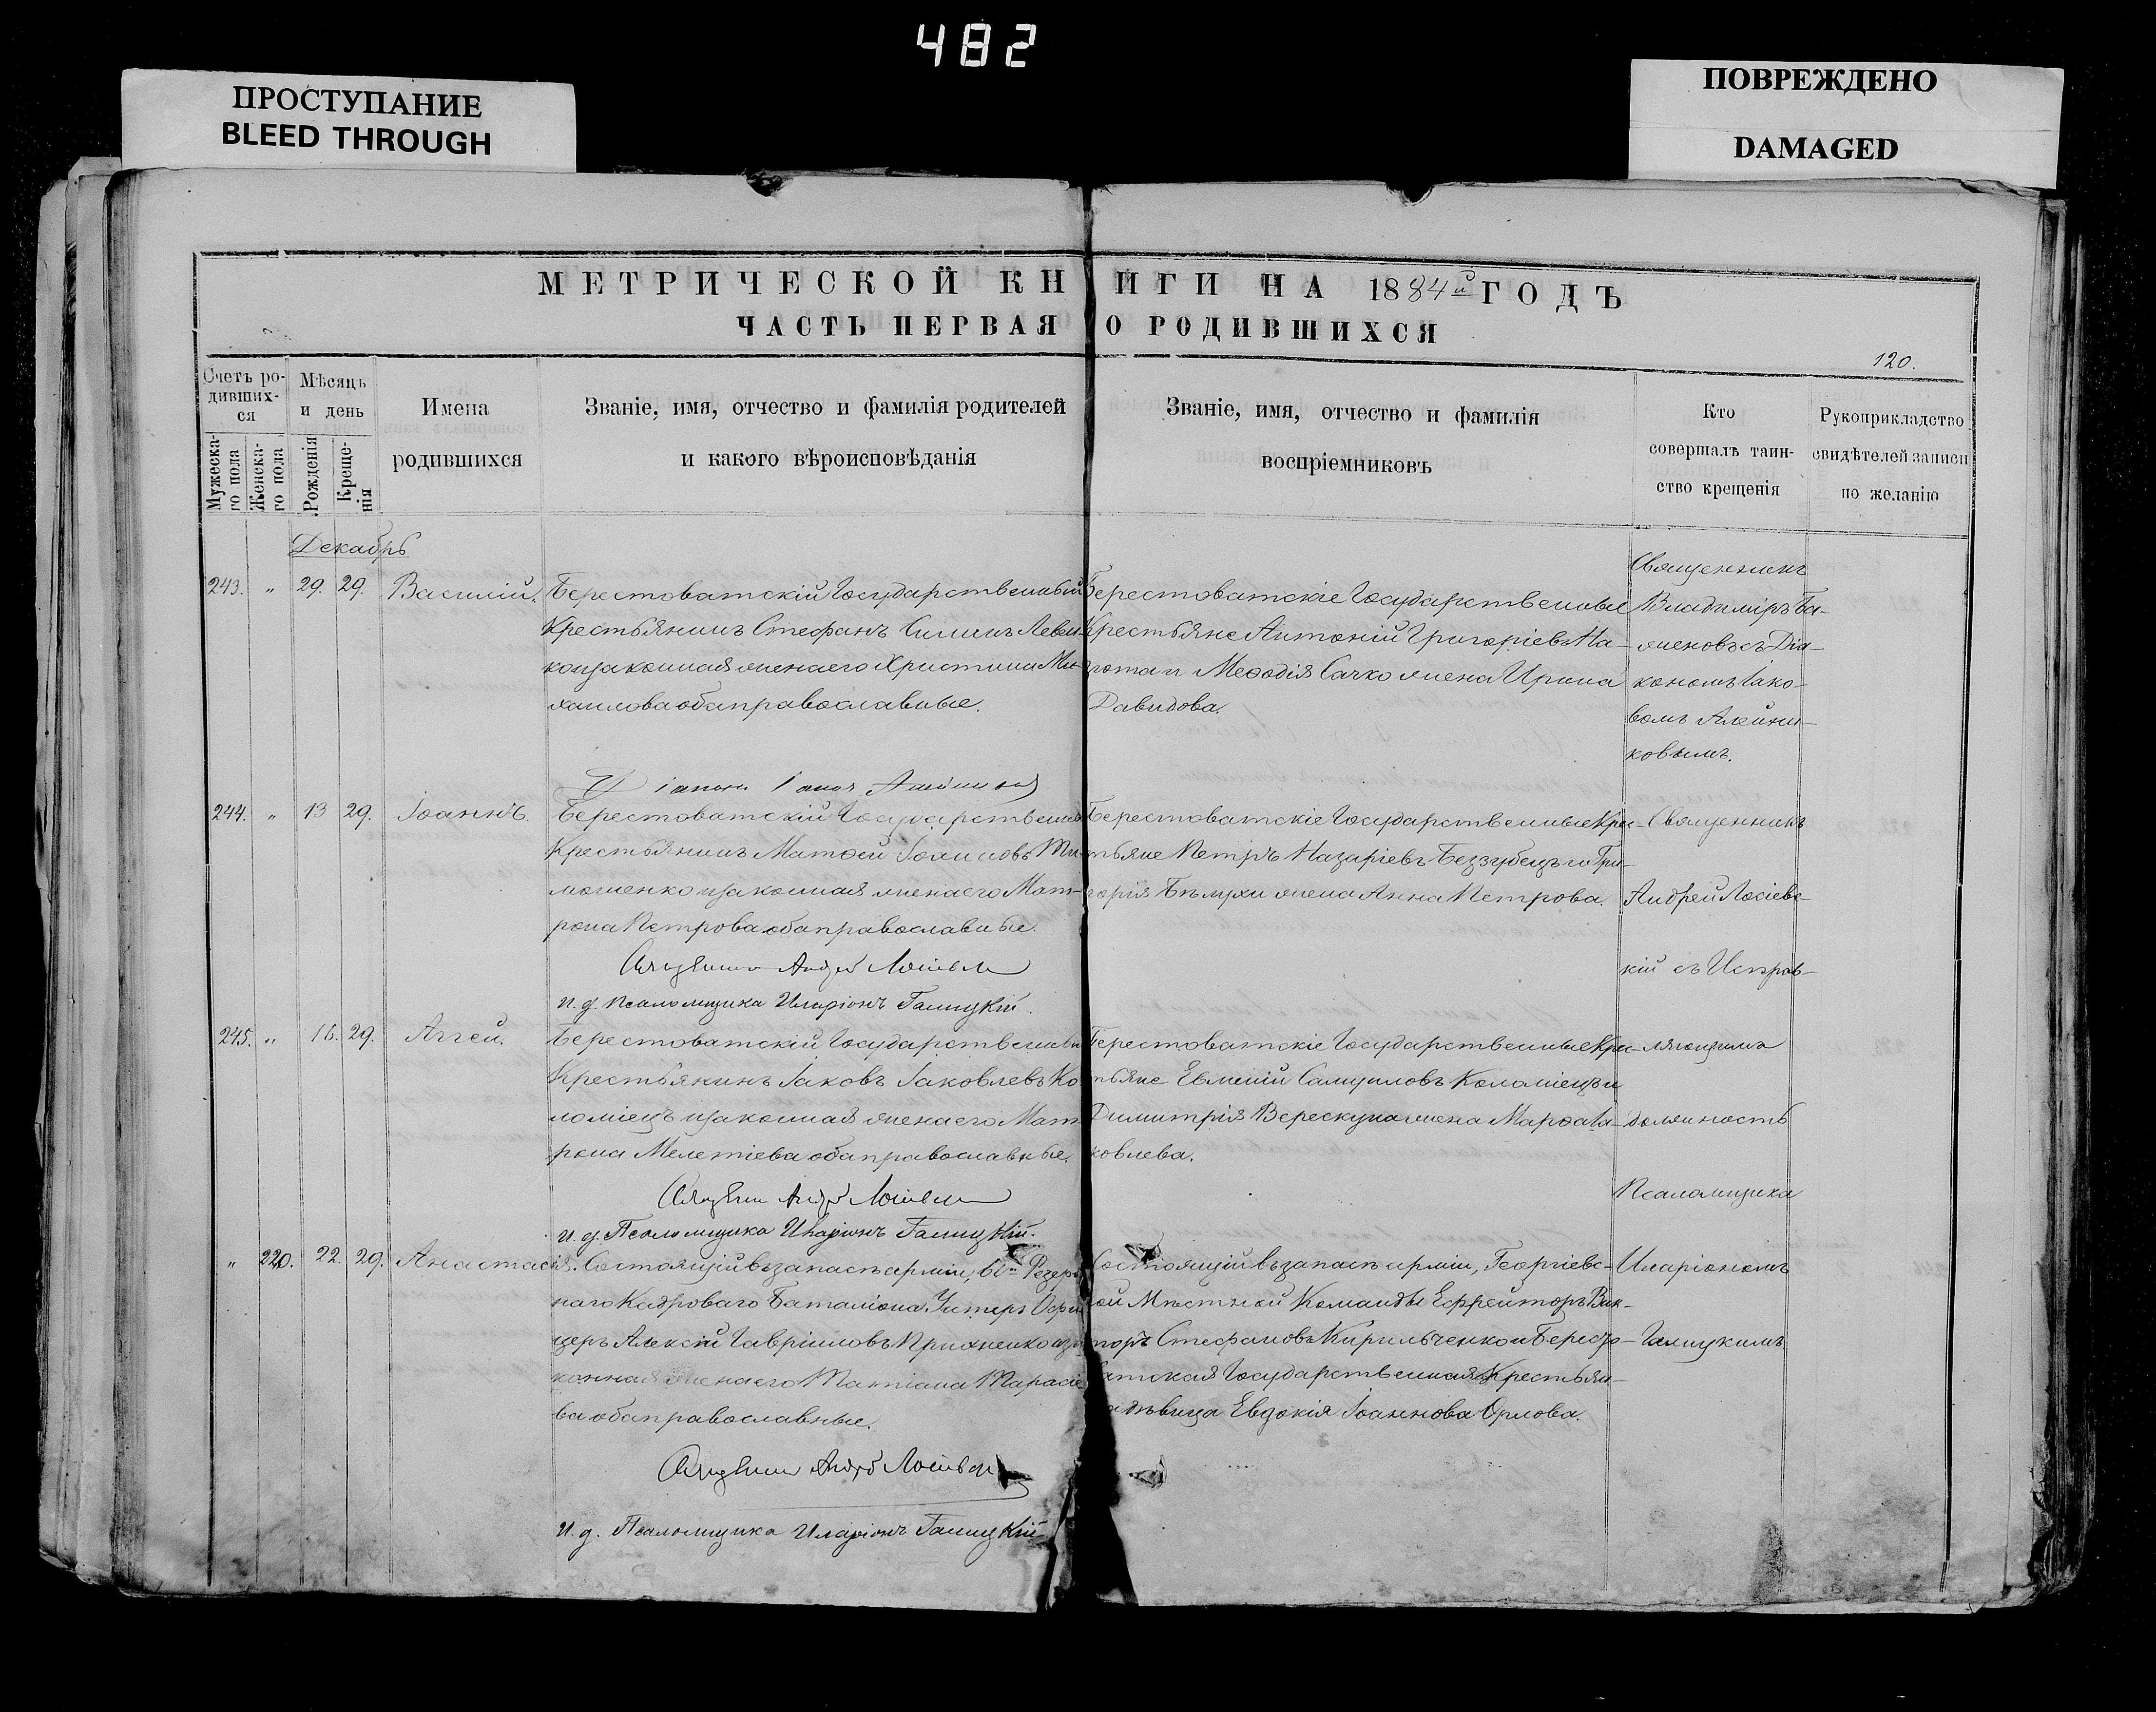 482
ПРОСТУПАНИЕ
BLEED THROUGH
ПОВРЕЖДЕНО
DAMAGED
МЕТРИЧЕСКОЙ КНИГИ НА 1884й ГОДЪ
ЧАСТЬ ПЕРВАЯ О РОДИВШИХСЯ
120.
Счетъ ро-
дивших-
ся
Мужеска-
го пола
Женска-
го пола
Мѣсяць
и день
Рожденія
Креще-
нія
Имена
родившихся
Званіе, имя, отчество и фамилія родителей
и какого вѣроисповѣданія
Званіе, имя, отчество и фамилія
воспріемниковъ
Кто
совершалъ таин-
ство крещенія
Рукоприкладство
свидѣтелей записи
по желанію
Декабрь
243. „ 29. 29. Василій.
Берестоватскій Государственный
Крестьянинъ Стефанъ
законная жена его Христина Ми-
хаилова оба православные.
Берестоватскіе Государственные
Крестьяне Антоній Григоріевъ На-
гота и Меѳодія Сачко жена Ирина
Давидова.
Священникъ
Владиміръ Ба-
женовъ съ Діа-
кономъ Іако-
вомъ Алейни-
ковымъ.
244. „ 13 29. Іоаннъ.
Берестоватскій Государственны
Крестьянинъ Матѳей Ти-
мошенко и законная жена его Мат-
рона Петрова оба православные.
и. д. Псаломщика Иларіонъ Галицкій.
Берестоватскіе Государственные Крес-
тьяне Петръ Назаріевъ Беззубецъ и Гри-
горія жена Анна Петрова.
Священникъ
Андрей Лосіевс-
кій съ Исправ-
245. „ 16. 29. Аггей.
Берестоватскій Государственны
Крестьянинъ Іаковъ Іаковлевъ Ко
ломіецъ и законная жена его Мат
рона Мелетіева оба православные.
и. д. Псаломщика Иларіонъ Галицкій.
Берестоватскіе Государственные Крес-
тьяне Евменій Самуиловъ Коломіецъ и
Димитрія Верескуна жена Марѳа Іа-
ковлева.
ляющимъ
должность
Псаломщика
„ 220. 22. 29. Анастасія.
Состоящій въ запасѣ арміи, Резерв
наго Кадроваго Баталіона Унтеръ Офи
церъ Алексій Гавріиловъ и за
конная жена его Татіана Тарасіе
ва оба православные.
и. д. Псаломщика Иларіонъ Галицкій
Состоящій въ запасѣ арміи, Георгіевс-
кой Мѣстной Команды Ефрейторъ Вик-
торъ Стефановъ Кирильченко и Бересто-
ватская Государственная Крестьян-
ка дѣвица Евдокія Іоаннова Орлова.
Иларіономъ
Галицкимъ